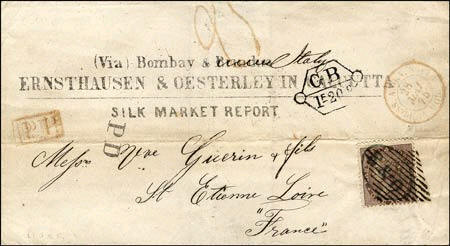 (Via) Bombay & Brindisi Italy
ERNSTHAUSEN & OESTERLEY IN CALCUTTA
SILK MARKET REPORT.
GB
1F 20
P.D.
PD
Messrs Vve Guerin & fils
St Etienne Loire
"France"